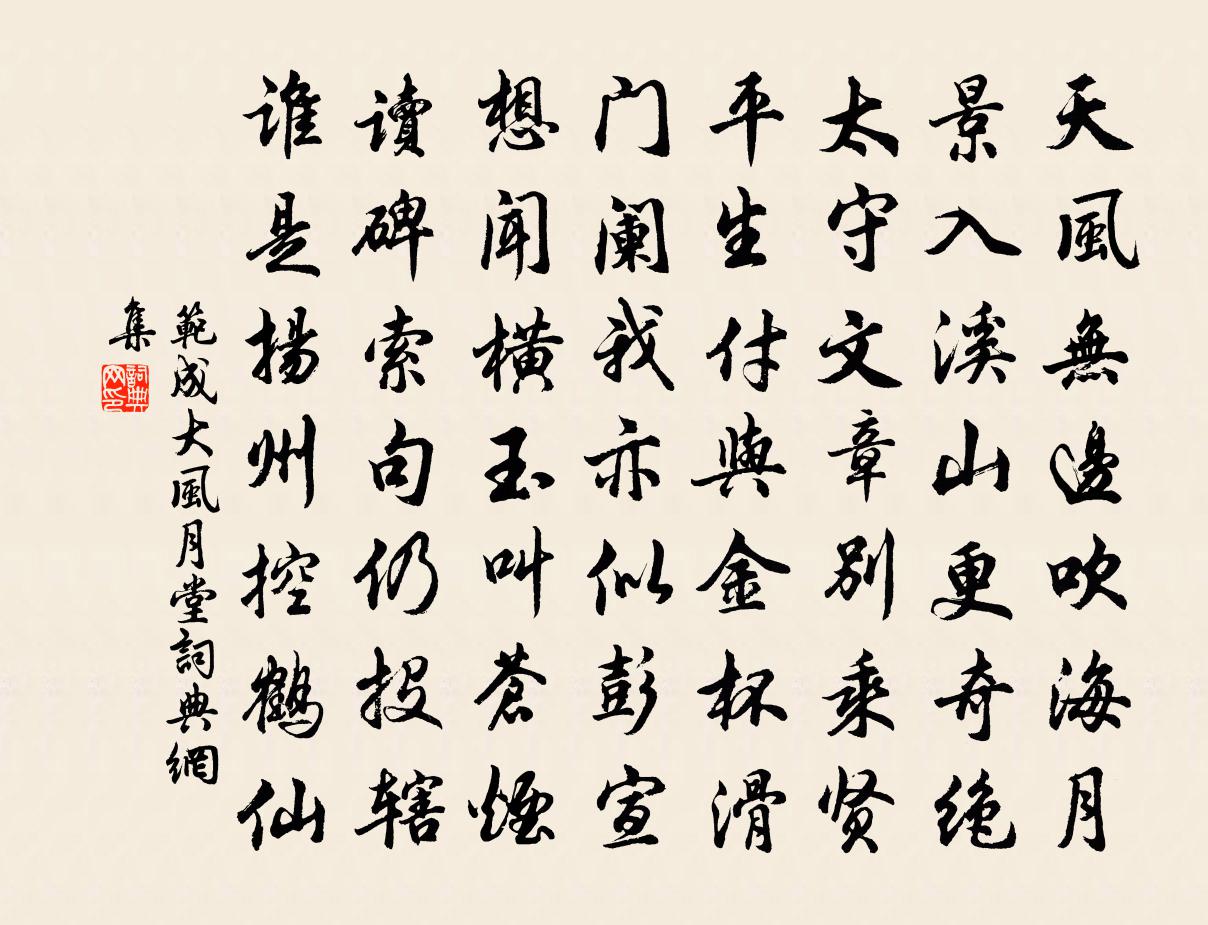 天風無邊吹海月
景入溪山更奇绝
太守文章别乘贤
平生付與金杯滑
门阑我亦似彭宣
想闻橫玉叫蒼煙
讀碑索句仍投辖
谁是揚州控鶴仙
範成大風月堂詞典網
集
詞典网印